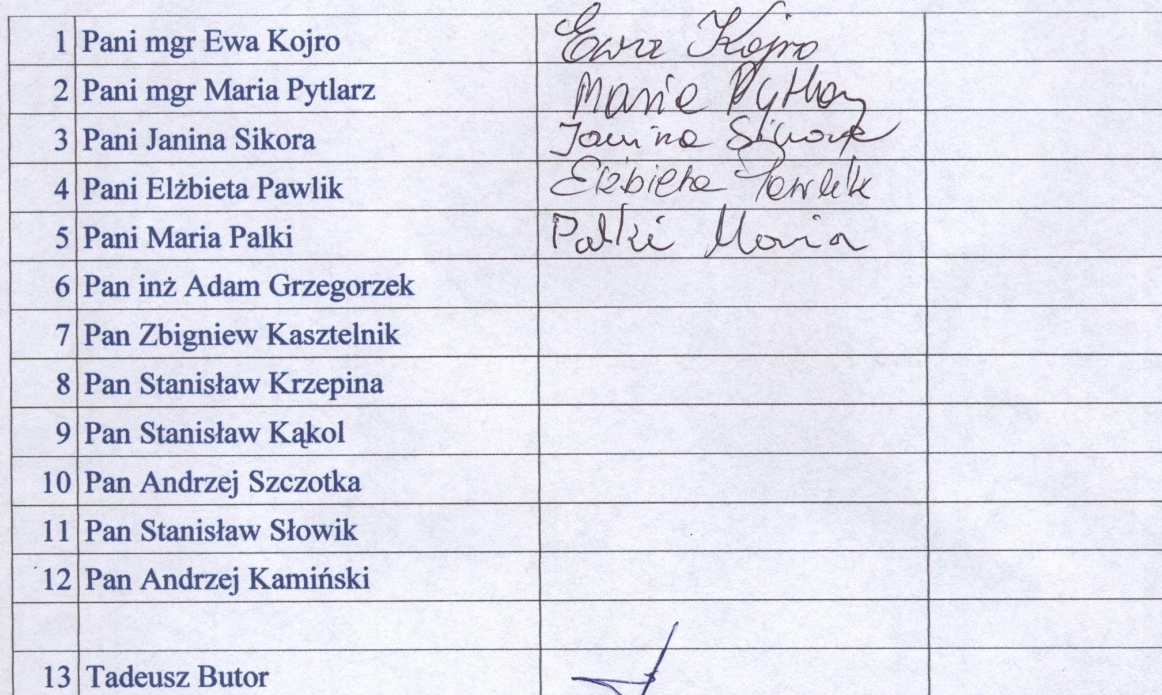 1 Pani mgr Ewa Kojro Ewa Kojro
2 Pani mgr Maria Pytlarz Maria Pytlarz
3 Pani Janina Sikora Janina Sikora
4 Pani Elżbieta Pawlik Elżbieta Pawlik
5 Pani Maria Palki Palki Maria
6 Pan inż Adam Grzegorzek
7 Pan Zbigniew Kasztelnik
8 Pan Stanisław Krzepina
9 Pan Stanisław Kąkol
10 Pan Andrzej Szczotka
11 Pan Stanisław Słowik
12 Pan Andrzej Kamiński
13 Tadeusz Butor